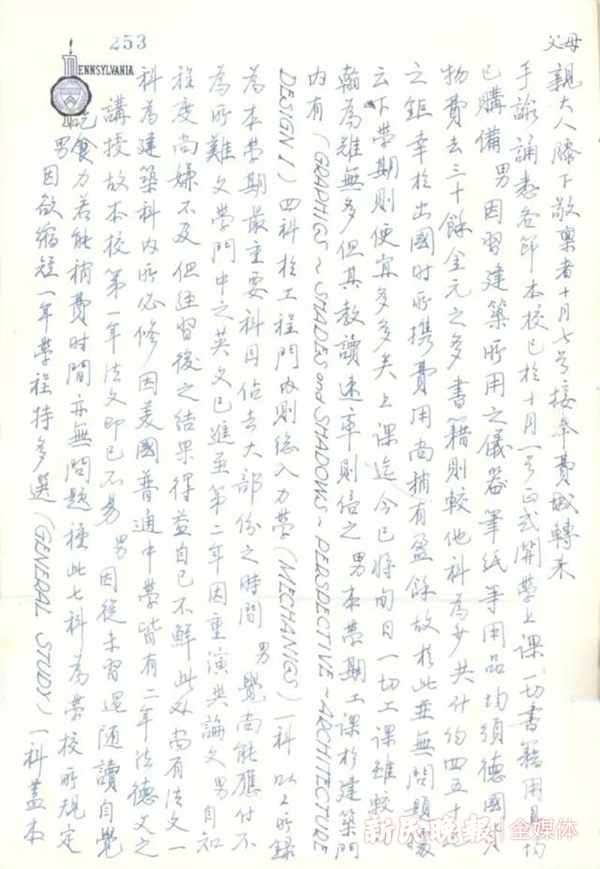 253
PENNSYLVANIA
父母
親大人膝下敬稟者十月七号接奉費城轉來
手諭誦悉各節本校已於十月一号正式開學上課一切書籍用具均
已購備男因習建築所用之儀器筆紙等用品均須德國
物費去三十餘金元之多書籍則較他科為少共计約四五十
之鉅幸於出國时所携費用尚稍有盈餘故於此並無問題
云下學期則便宜多多矣上課迄今已将旬日一切工課雖較
翰為雖無多但其教讀速率則倍之男本學期工課於建築門
内有(GRAPHICS~SHADES and SHADOWS~PERSPECTIVE~ARCHITECTURE
DESIGN I)四科於工程門内則總入力學(MECHANICS)一科以上所錄
為本學期最重要科目佔去大部份之時間男覺尚能應付不
為所難文學門中之英文已進至第二年因重演與論文男自知
程度尚嫌不及但经習後之结果得益自己不鮮此外尚有法文一
科為建築科内所必修因美國普通中學皆有二年法德文之
講授故本校第一年法文即已不易男因從未習過随讀自覺
吃食力若能稍費时間亦無問題種此七科為學校所規定
男因欲缩短一年學程特多選(GENERAL STUDY)一科蓋本
新民晚报
全媒体